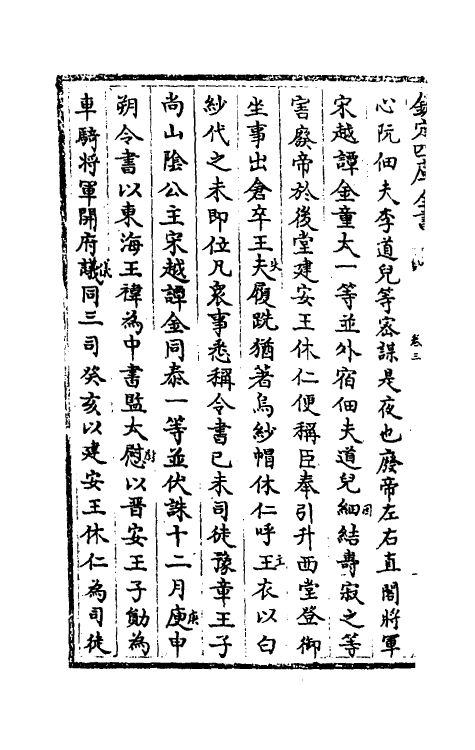 欽定四庫全書
卷三
心阮佃夫李道兒等密謀是夜也廢帝左右直閤將軍
宋越譚金童太一等並外宿佃夫道兒細因結壽寂之等
害廢帝於後堂建安王休仁便稱臣奉引升西堂登御
坐事出倉卒王夫失履跣猶著烏紗帽休仁呼王主衣以白
紗代之未即位凡衆事悉稱令書已未司徒豫章王子
尚山陰公主宋越譚金同泰一等並伏誅十二月庚庚申
朔令書以東海王禕為中書監太慰尉以晋安王子勛為
車騎將軍開府議儀同三司癸亥以建安王休仁為司徒